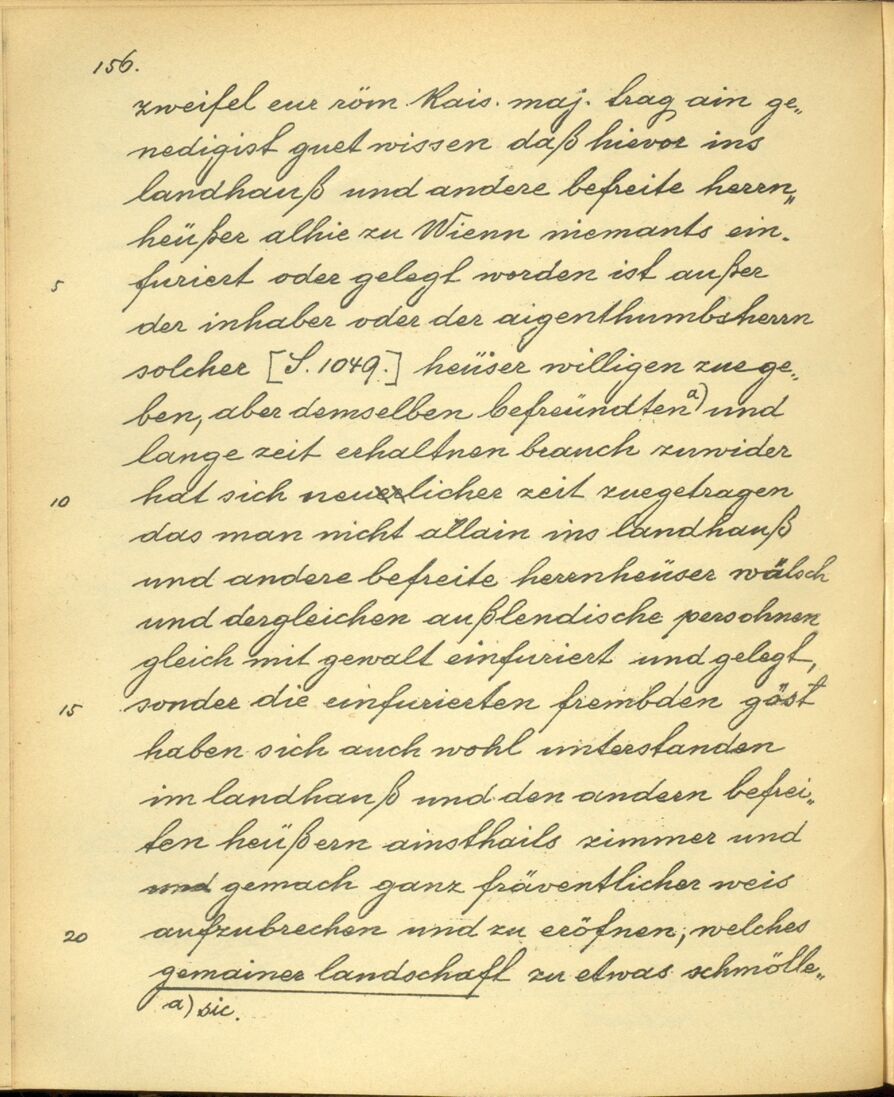 156.
zweifel eur röm. Kais. maj. trag ain ge„
nedigist guet wissen daß hievor ins
landhauß und andere befreite herrn„
heüßer alhie zu Wienn niemants ein-
5 furiert oder gelegt worden ist außer
der inhaber oder der aigenthumbsherrn
solcher [S. 1049.] heüser willigen zuege„
ben, aber demselben befreündten a) und
lange zeit erhaltnen brauch zuwider
10 hat sich neuerlicher zeit zuegetragen
das man nicht allain ins landhauß
und andere befreite herrnheüser wälsch
und dergleichen außlendische persohnen
gleich mit gewalt einfuriert und gelegt,
15 sonder die einfurierten frembden göst
haben sich auch wohl unterstanden
im landhauß und den andern befrei„
ten heüßern ainsthails zimmer und
und gemach ganz fräventlicher weis
20 aufzubrechen und zu eröfnen, welches
gemainer landschaft zu etwas schmölle„
a) sic.